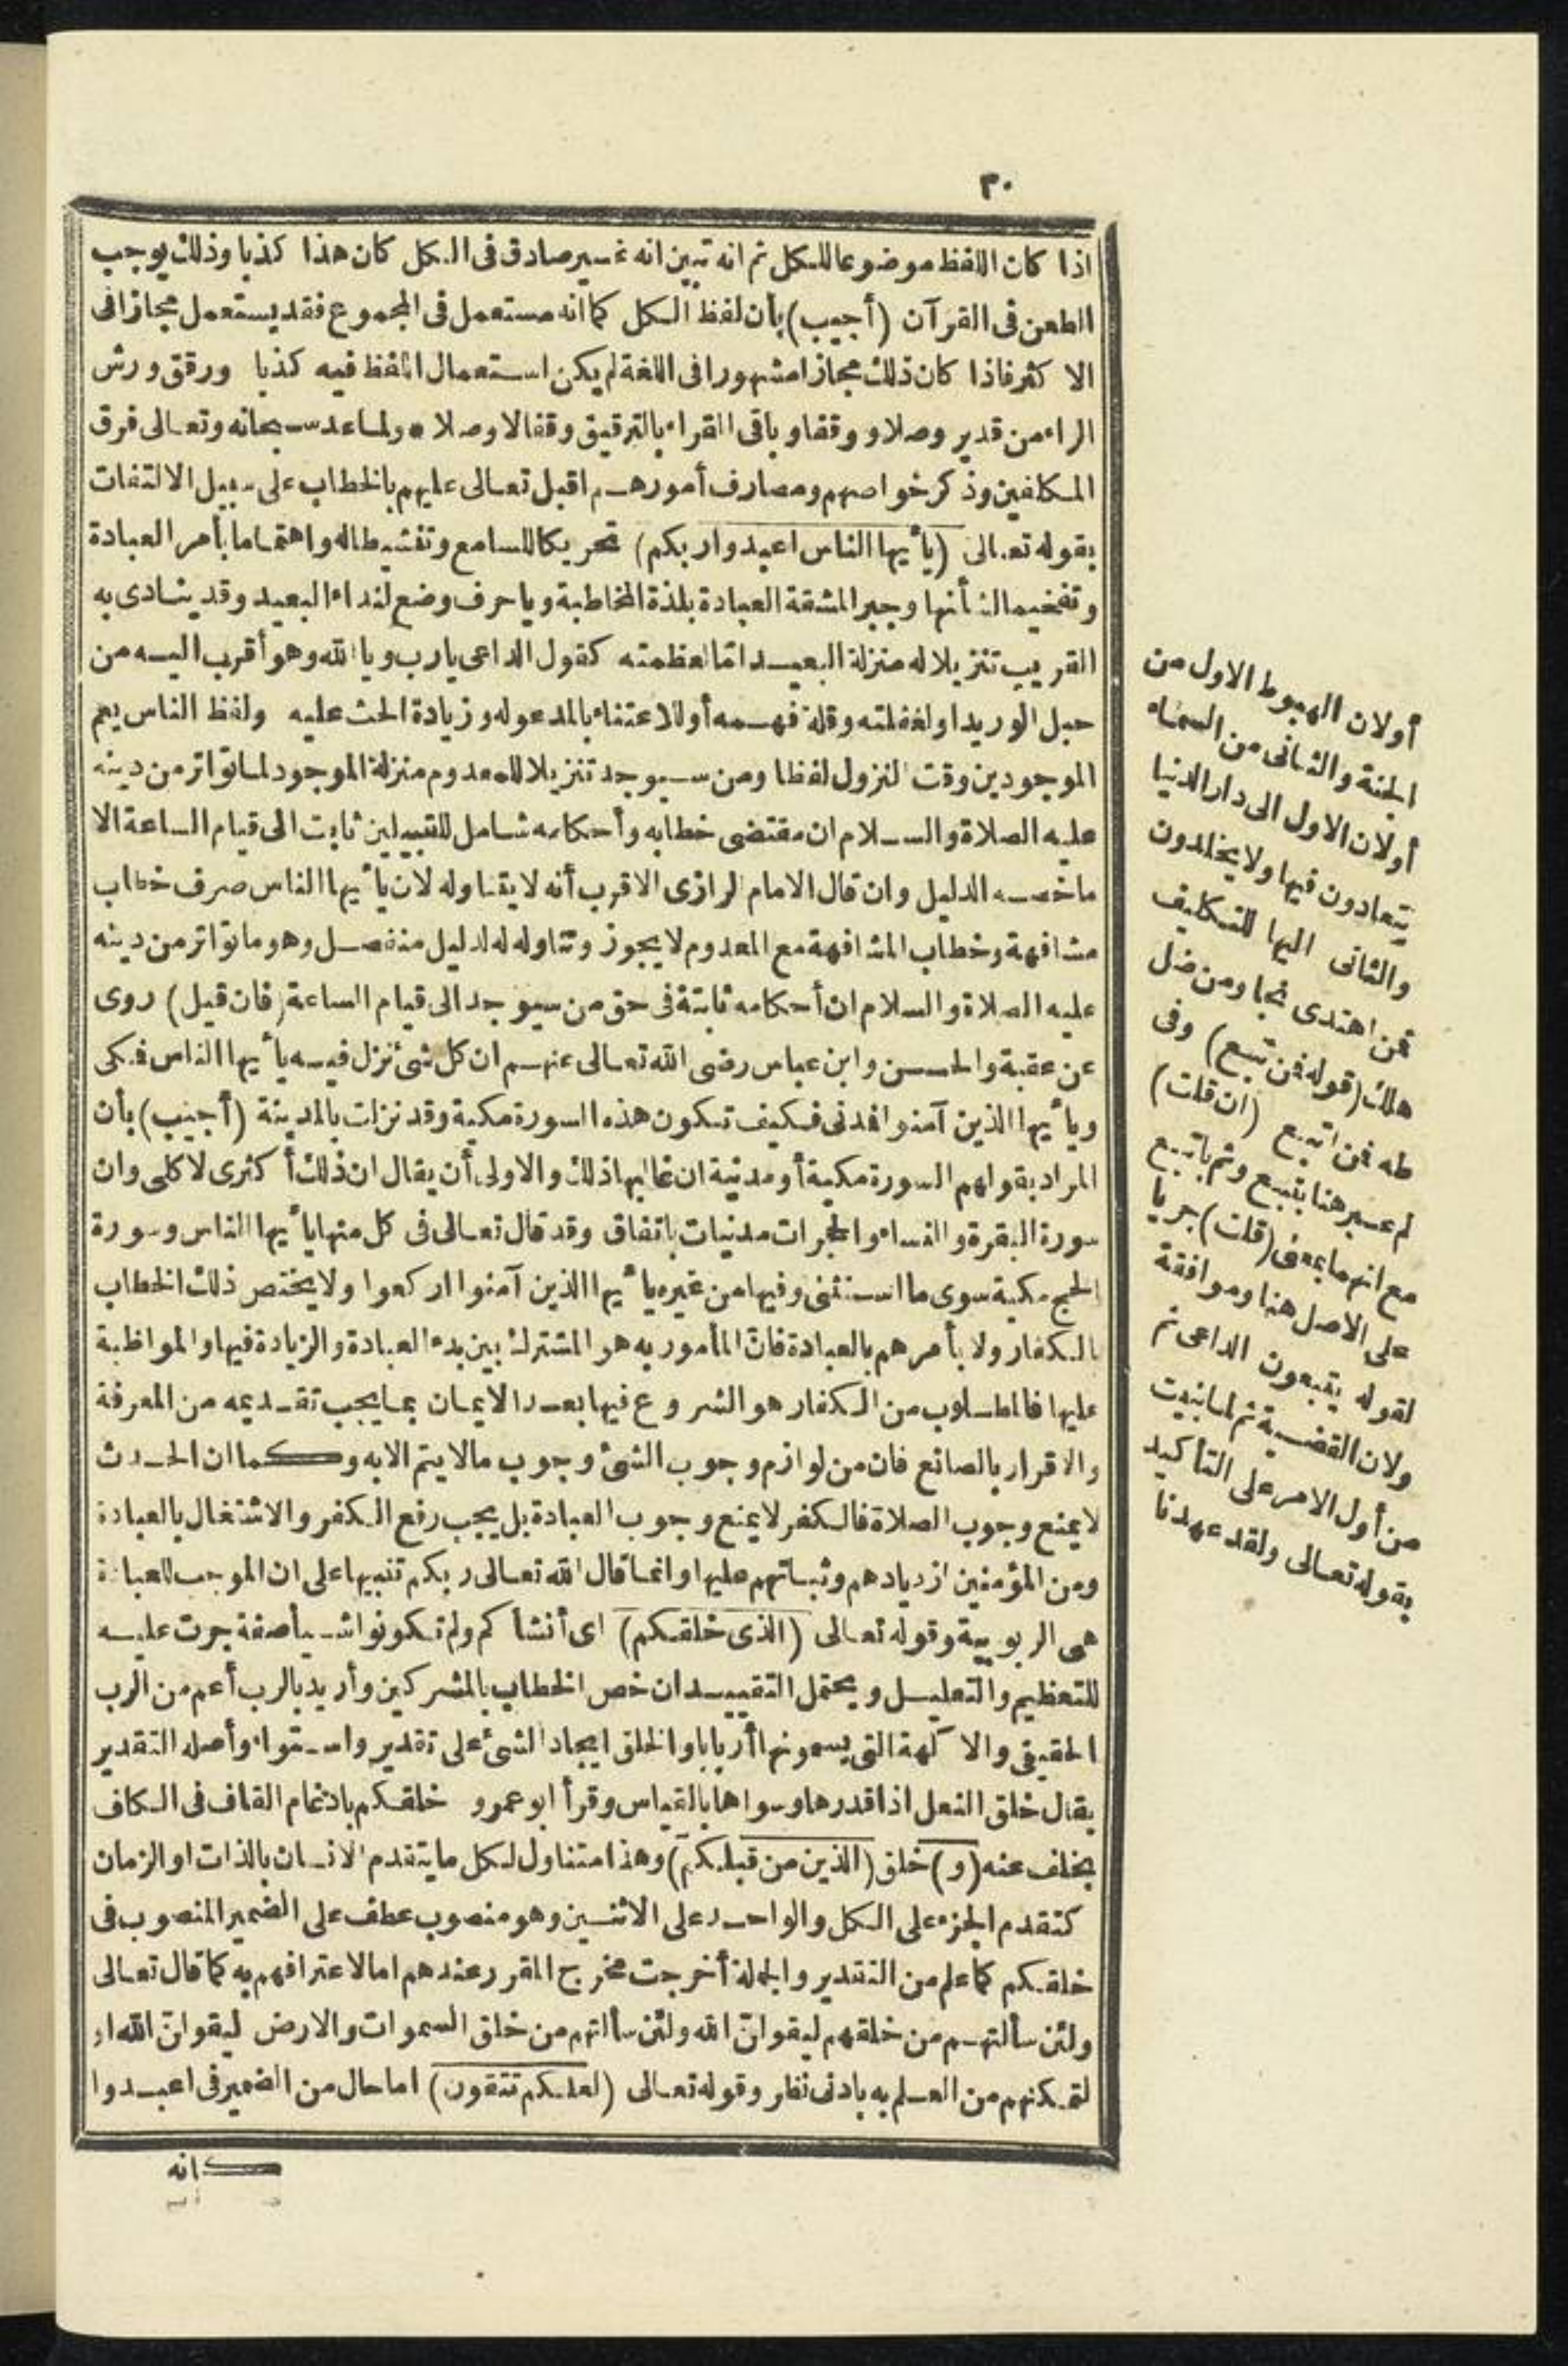 ٣٠
اذا كان اللفظ موضوعا للكل ثم انه تبين انه غير صادق فى الكل كان هذا كذبا وذلك يوجب
الطعن فى القرآن (أجيب) بأن لفظ الكل كما انه مستعمل فى المجموع فقد يستعمل مجازا فى
الاكثر فاذا كان ذلك مجازا مشهورا فى اللغة لم يكن استعمال اللفظ فيه كذبا ورقق ورش
الراء من قدير وصلا ووقفا وباقى القراء بالترقيق وقفا لا وصلا * ولما عدد سبحانه وتعالى فرق
المكلفين وذكر خواصهم ومصارف أمورهم اقبل تعالى عليهم بالخطاب على سبيل الالتفات
بقوله تعالى (يا أيها الناس اعبدوا ربكم) تحريكا للسامع وتنشيطا له واهتماما بأمر العبادة
وتفخيما لشأنها وجبرا لمشقة العبادة بلذة المخاطبة ويا حرف وضع لنداء البعيد وقد ينادى به
القريب تنزيلا له منزلة البعيد امّا لعظمته كقول الداعى يا رب ويا الله وهو أقرب اليه من
حبل الوريد او لغفلته وقلة فهمه أو للاعتناء بالمدعو له وزيادة الحث عليه ولفظ الناس يعم
الموجودين وقت النزول لفظا ومن سيوجد تنزيلا للمعدوم منزلة الموجود لما تواتر من دينه
عليه الصلاة والسلام ان مقتضى خطابه وأحكامه شامل للقبيلين ثابت الى قيام الساعة الا
ما خصه الدليل وان قال الامام الرازى الاقرب أنه لا يتناوله لان يا أيها الناس صرف خطاب
مشافهة وخطاب المشافهة مع المعدوم لا يجوز وتناوله له لدليل منفصل وهو ما تواتر من دينه
عليه الصلاة والسلام ان أحكامه ثابتة فى حق من سيوجد الى قيام الساعة (فان قيل) روى
عن عقبة والحسن وابن عباس رضى الله تعالى عنهم ان كل شئ نزل فيه يا أيها الناس فمكى
ويا أيها الذين آمنوا فمدنى فكيف تكون هذه السورة مكية وقد نزلت بالمدينة (أجيب) بأن
المراد بقولهم السورة مكية أو مدنية ان غالبها ذلك والاولى أن يقال ان ذلك أكثرى لا كلى وان
سورة البقرة والنساء والحجرات مدنيات باتفاق وقد قال تعالى فى كل منها يا أيها الناس وسورة
الحج مكية سوى ما استثنى وفيها من غيره يا أيها الذين آمنوا اركعوا ولا يختص ذلك الخطاب
بالكفار ولا بأمرهم بالعبادة فانّ المأمور به هو المشترك بين بدء العبادة والزيادة فيها والمواظبة
عليها فالمطلوب من الكفار هو الشروع فيها بعد الايمان بما يجب تقديمه من المعرفة
والاقرار بالصانع فان من لوازم وجوب الشئ وجوب مالا يتم الا به وكما ان الحدث
لا يمنع وجوب الصلاة فالكفر لا يمنع وجوب العبادة بل يجب رفع الكفر والاشتغال بالعبادة
ومن المؤمنين ازديادهم وثباتهم عليها وانما قال الله تعالى ربكم تنبيها على ان الموجب للعبادة
هى الربوبية وقوله تعالى (الذى خلقكم) اى أنشأكم ولم تكونوا شيأ صفة جرت عليه
للتعظيم والتعليل ويحتمل التقييد ان خص الخطاب بالمشركين وأريد بالرب أعم من الرب
الحقيقى والا لهة التى يسمونها أربابا والخلق ايجاد الشئ على تقدير واستواء وأصله التقدير
يقال خلق النعل اذا قدرها وسواها بالقياس وقرأ ابو عمرو خلقكم بادغام القاف فى الكاف
بخلف عنه (و) خلق (الذين من قبلكم) وهذا متناول لكل ما يتقدم الانسان بالذات او الزمان
كتقدم الجزء على الكل والواحد على الاثنين وهو منصوب عطف على الضمير المنصوب فى
خلقكم كما علم من التقدير والجملة أخرجت مخرج المقرر عندهم امّا لاعترافهم به كما قال تعالى
ولئن سألتهم من خلقهم ليقولنّ الله ولئن سألتهم من خلق السموات والارض ليقولنّ الله او
لتمكنهم من العلم به بادنى نظر وقوله تعالى (لعلكم تتقون) اما حال من الضمير فى اعبدوا
كانه
أو لان الهبوط الاول من
الجنة والثانى من السماء
أو لان الاول الى دار الدنيا
يتعادون فيها ولا يخلدون
والثانى اليها للتكليف
فمن اهتدى نجا ومن ضل
هلك (قوله فمن تبع) وفى
طه فمن اتبع (ان قلت)
لم عبر هنا بتبع وثم باتبع
مع انهما بمعنى (قلت) جريا
على الاصل هنا وموافقة
لقوله يتبعون الداعى ثم
ولان القضية ثم لما بنيت
من أول الامر على التأكيد
بقوله تعالى ولقد عهدنا